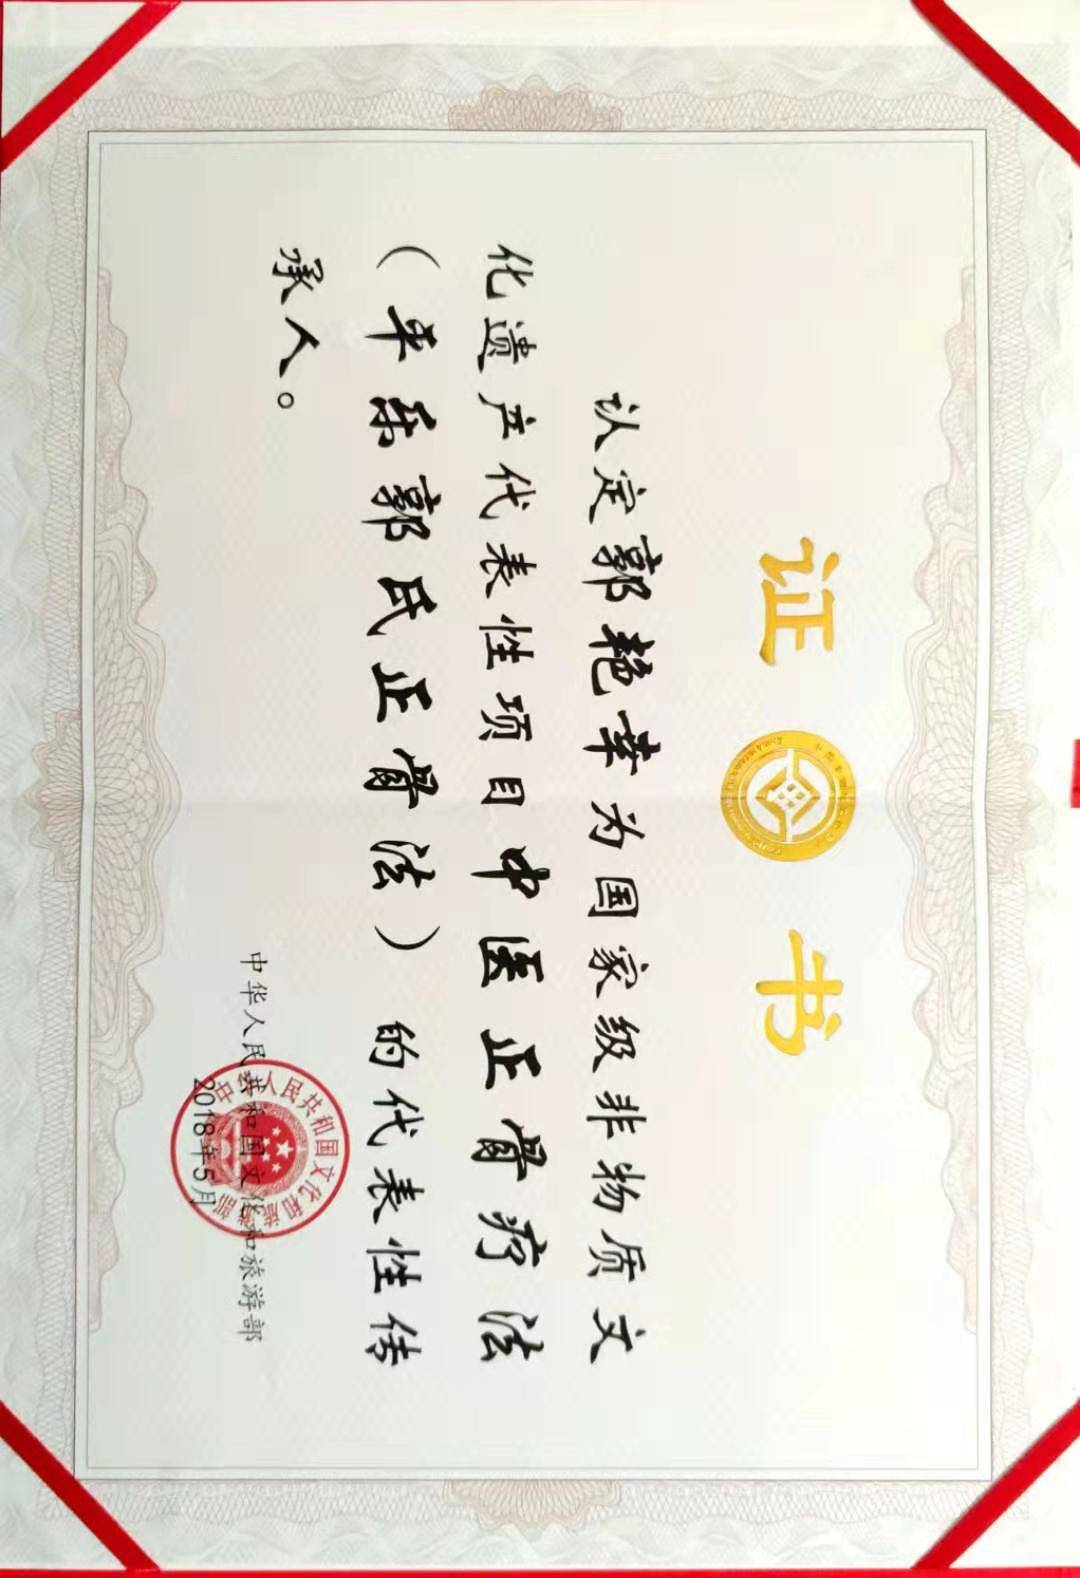 证书
认定郭艳幸为国家级非物质文
化遗产代表性项目中医正骨疗法
（平乐郭氏正骨法）的代表性传
承人。
中华人民共和国文化和旅游部
2018年5月
中华人民共和国文化和旅游部